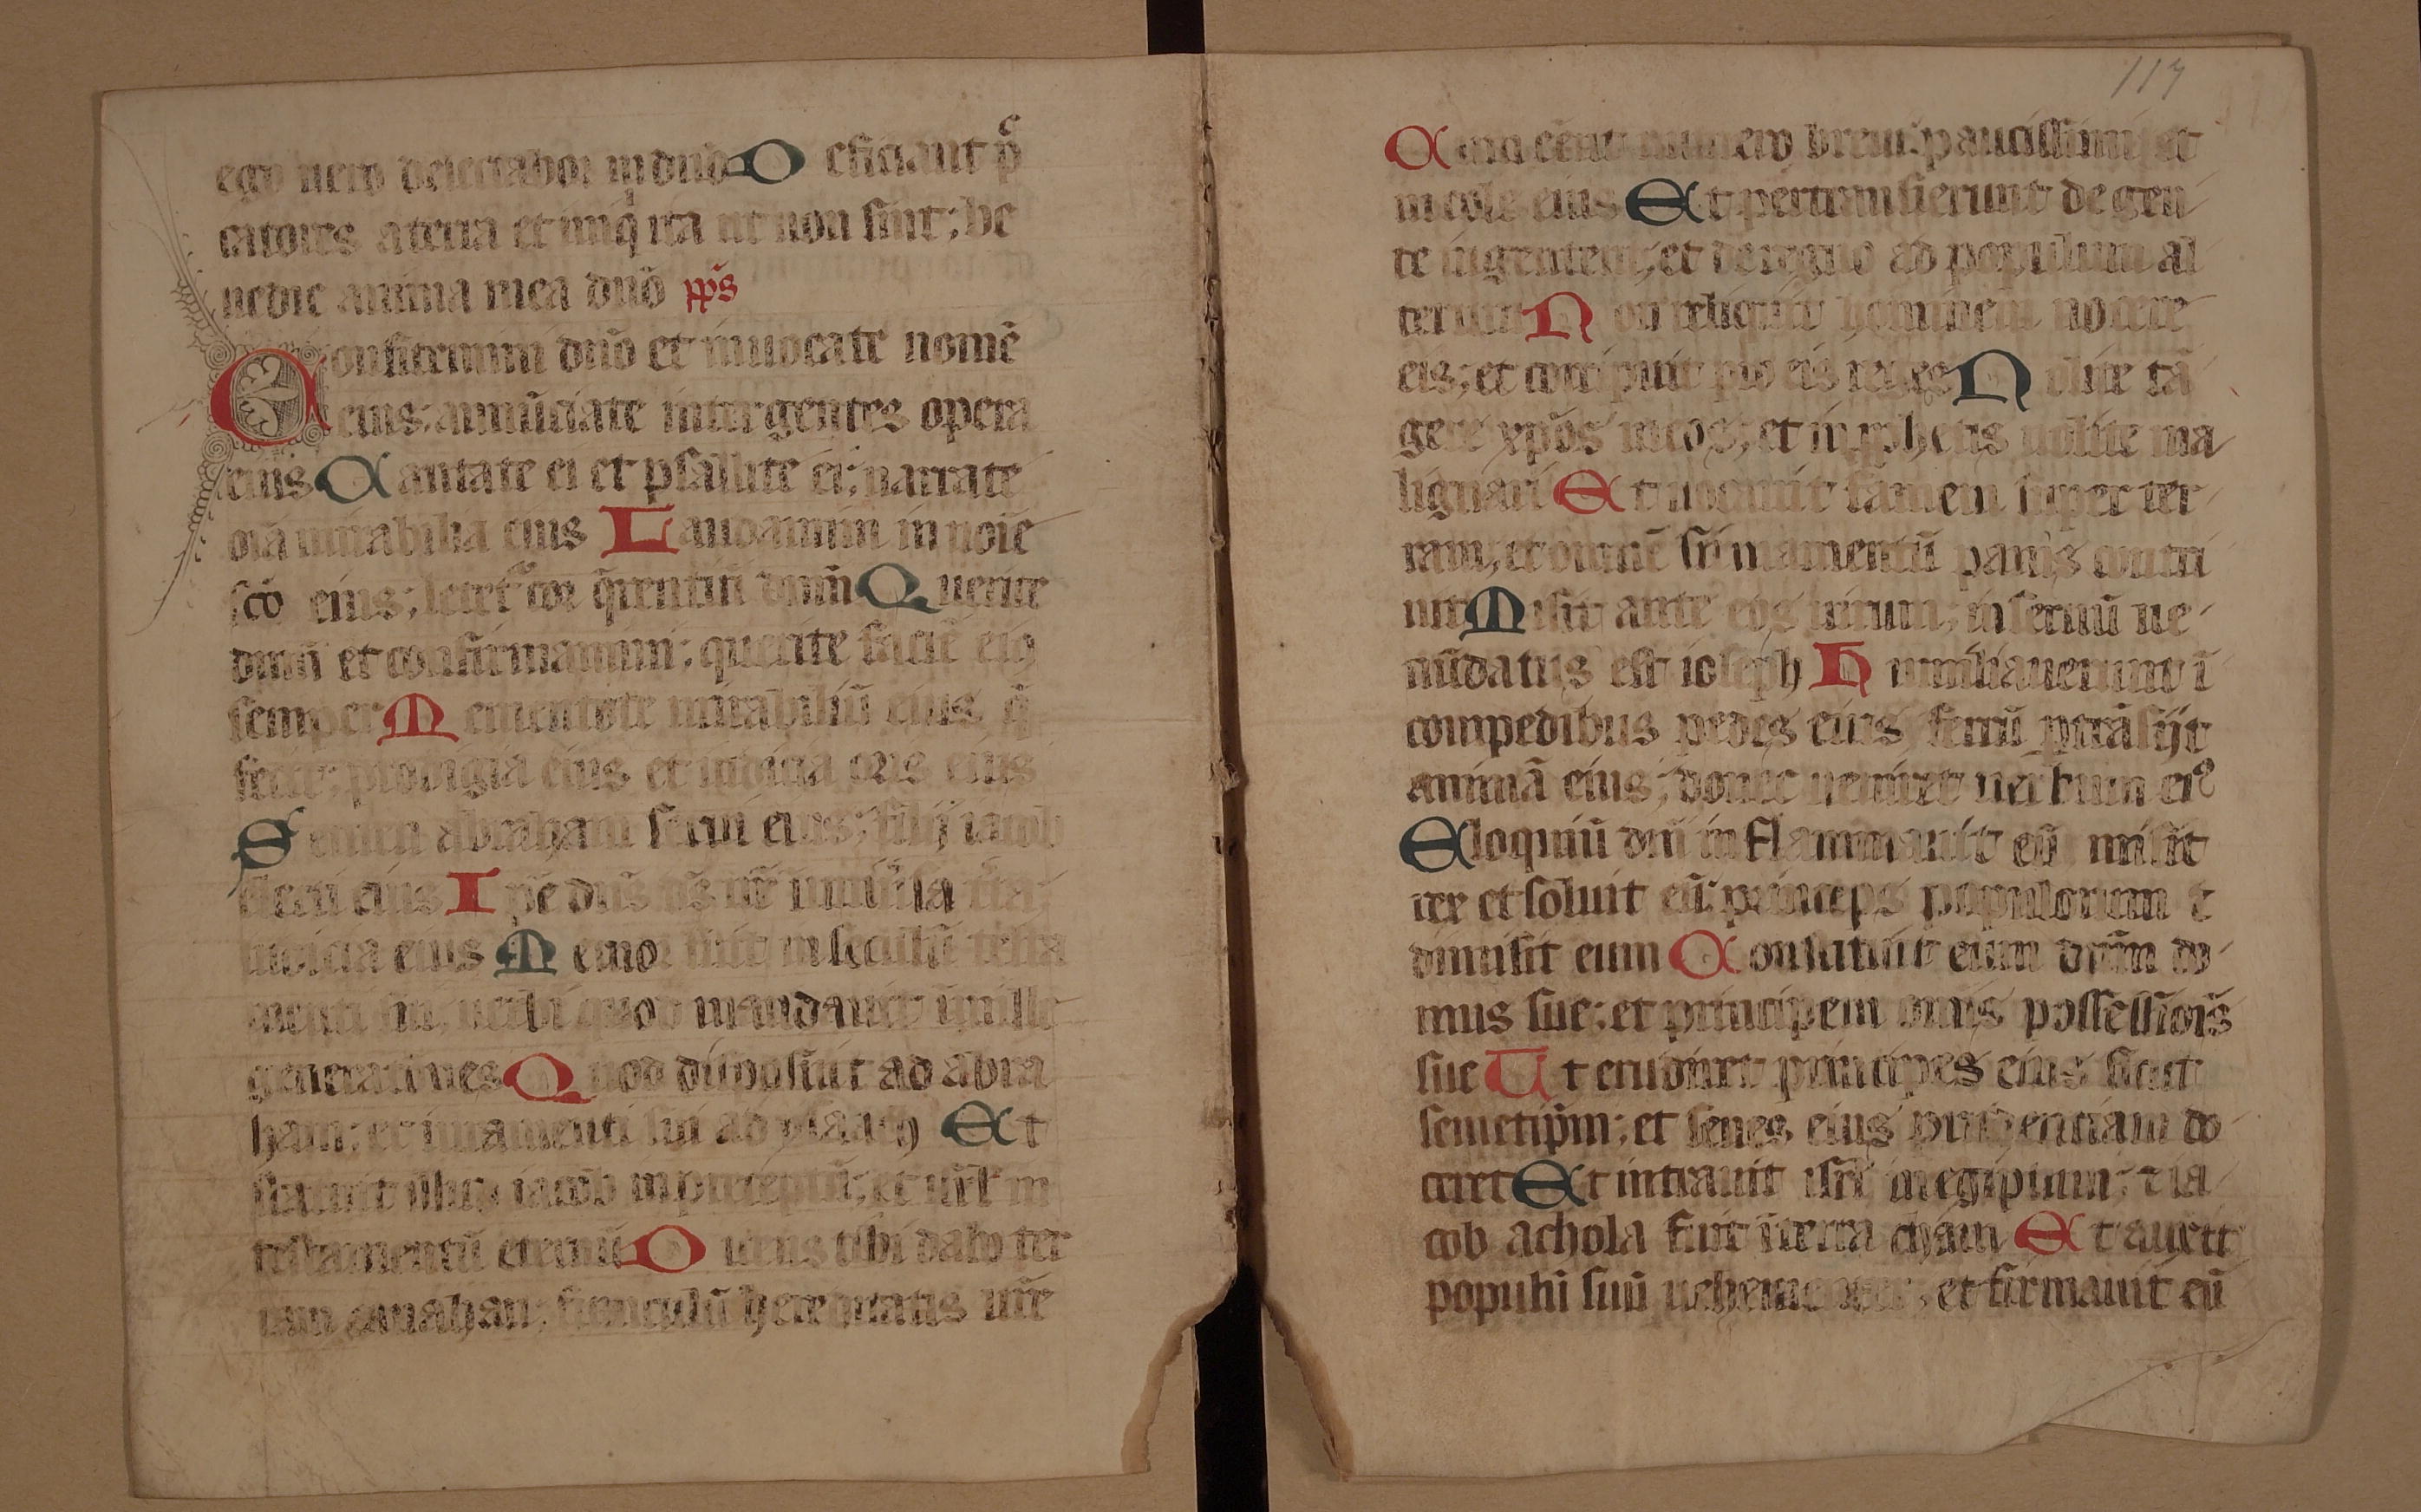 ego uero delectabor in dnō O eficiant pͨ
catores a terra et iniqͥ ita ut non sint; be
nedic anima mea dnō p̄s
Confitemini dnō et inuocate nomē
eius; annūciate inter gentes opera
eius Cantate ei et psallite ei; narrate
oīa mirabilia eius Laudamini in noīe
scō eius; letet᷑ cor q̄rentiū dnm̄ Querite
dnm̄ et confirmamini; querite faciē eiꝰ
semper Mementote mirabiliū eius q̄
fecit; prodigia eius et iudicia oris eius
Semen abraham serui eius; filij iacob
electi eius Ipē dn̄s ds̄ nr̄ in uniūsa tr̄a;
iudicia eius Memor fuit in seculū testa
menti sui, uerbi quod mandauit ī mille
generationes Quod disposuit ad abra
ham; et iuramenti sui ad ysaach Et
statuit illud iacob in preceptū; et isrl̄ in
testamentū eternū Dicens tibi dabo ter
ram chanahan; funiculū hereditatis ur̄e
117
Cum cēnt numero breui; paucissimi et
incole eius Et pertransierunt de gen
te in gentem; et de regno ad populum al
terum Non reliquit hominem nocere
eis; et corripuit pro eis reges Nolite tā
gere xpōs meos; et in p̱phetis nolite ma
lignari Et uocauit famem super ter
ram, et omnē firmamentū panis contri
uit Misit ante eos uirum; in seruū ue
nūdatus est ioseph Humiliauerunt ī
compedibus pedes eius, ferrū ꝑtrāsijt
animā eius; donec ueniret uerbum eiꝰ
Eloquiū dnī inflammauit eū misit
rex et soluit eū; princeps populorum ⁊
dimisit eum Constituit eum dnm̄ do
mus sue; et principem omīs possessiois̄
sue Ut erudiret principes eius sicut
semetip̄m; et senes eius prudenciam do
ceret Et intrauit isrl̄ in egiptum; ⁊ ia
cob achola fuit ī terra cham Et auxit
populū suū uehementer; et firmauit eū